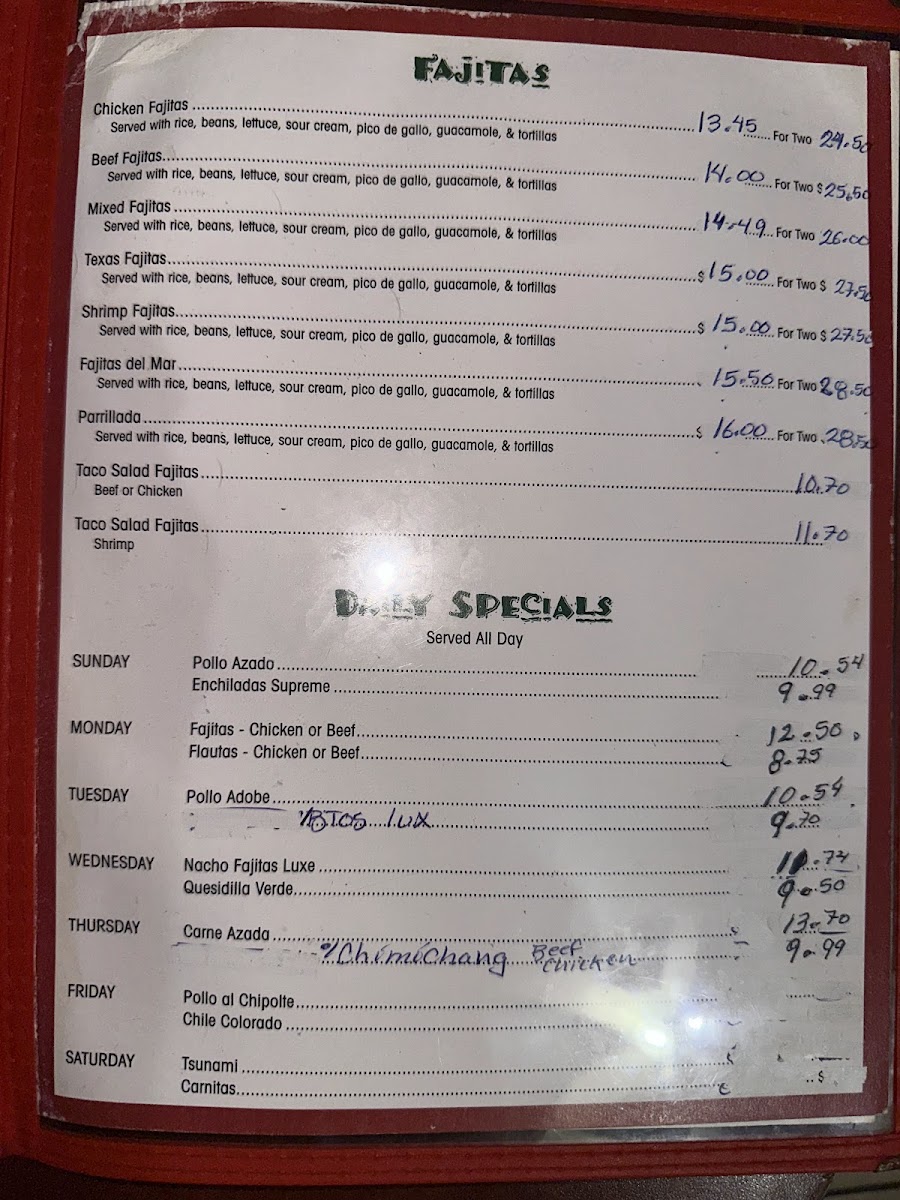 FAJITAS
Chicken Fajitas 13.45 For Two 24.50
Served with rice, beans, lettuce, sour cream, pico de gallo, guacamole, & tortillas
Beef Fajitas 14.00 For Two $ 25.50
Served with rice, beans, lettuce, sour cream, pico de gallo, guacamole, & tortillas
Mixed Fajitas 14.49 For Two 26.00
Served with rice, beans, lettuce, sour cream, pico de gallo, guacamole, & tortillas
Texas Fajitas $ 15.00 For Two $ 27.50
Served with rice, beans, lettuce, sour cream, pico de gallo, guacamole, & tortillas
Shrimp Fajitas $ 15.00 For Two $ 27.50
Served with rice, beans, lettuce, sour cream, pico de gallo, guacamole, & tortillas
Fajitas del Mar 15.50 For Two 28.50
Served with rice, beans, lettuce, sour cream, pico de gallo, guacamole, & tortillas
Parrillada $ 16.00 For Two 28.50
Served with rice, beans, lettuce, sour cream, pico de gallo, guacamole, & tortillas
Taco Salad Fajitas 10.70
Beef or Chicken
Taco Salad Fajitas 11.70
Shrimp
DAILY SPECIALS
Served All Day
SUNDAY Pollo Azado 10.54
Enchiladas Supreme 9.99
MONDAY Fajitas - Chicken or Beef 12.50
Flautas - Chicken or Beef 8.75
TUESDAY Pollo Adobe 10.54
lux 9.70
WEDNESDAY Nacho Fajitas Luxe
Quesidilla Verde 9.50
THURSDAY Carne Azada 13.70
Chimichang Beef Chicken 9.99
FRIDAY Pollo al Chipolte
Chile Colorado
SATURDAY Tsunami
Carnitas $